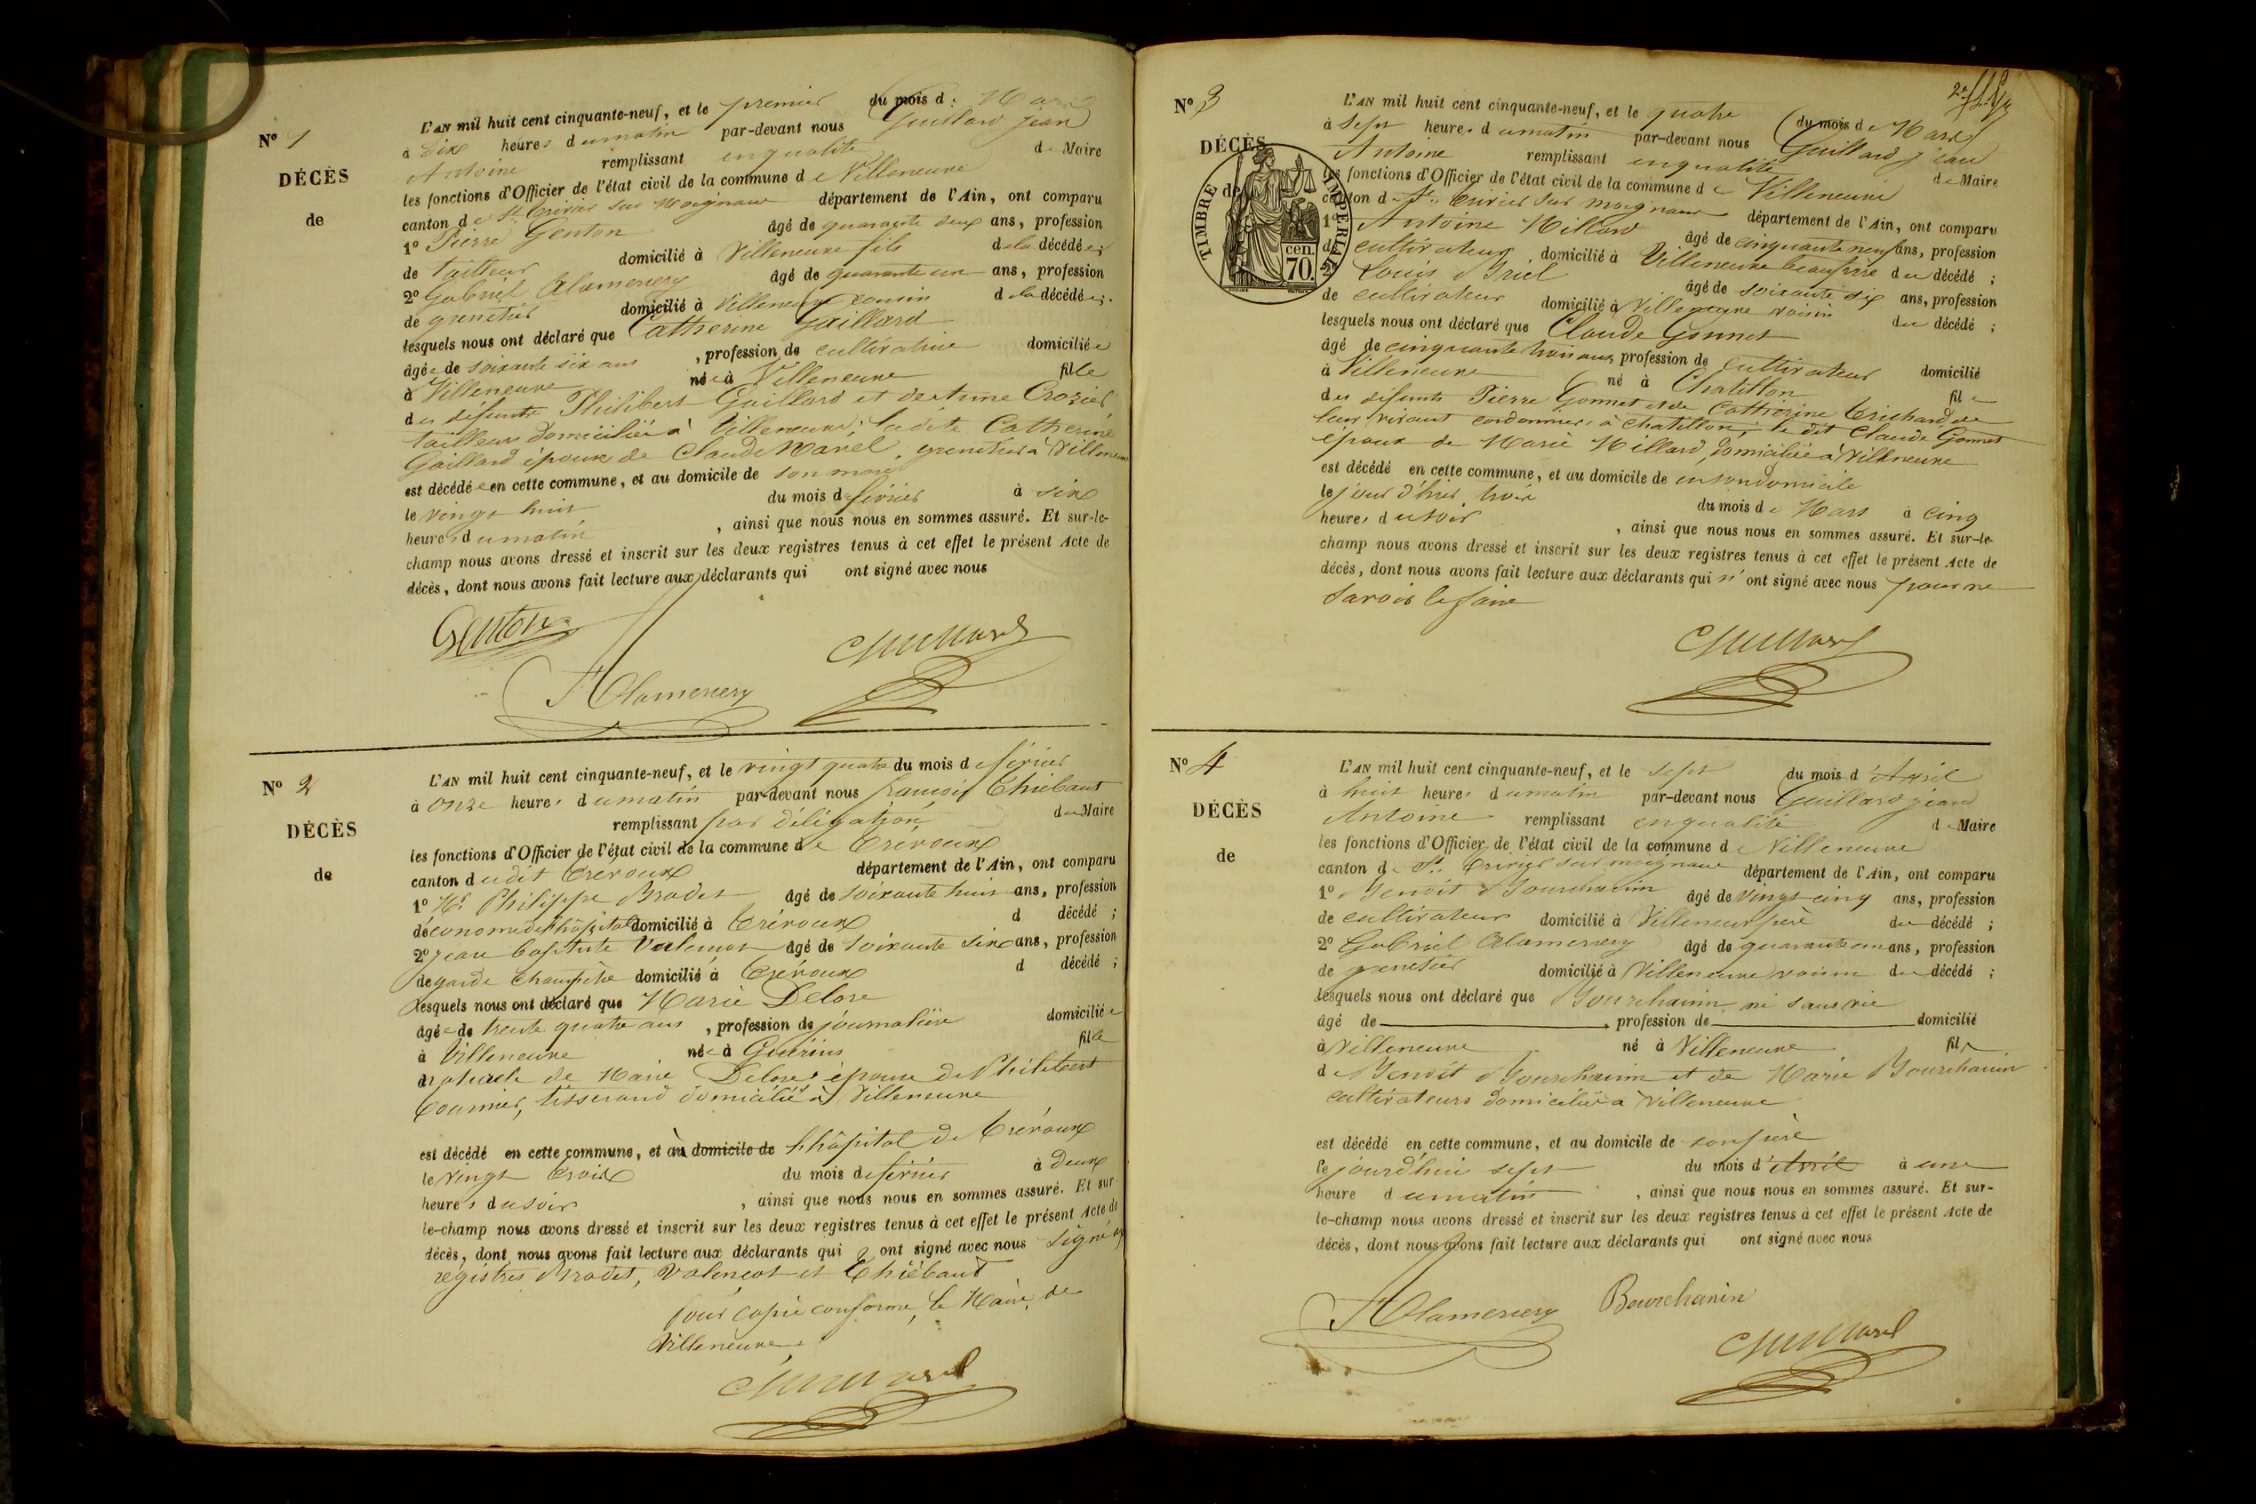 N° 1
DÉCÈS
de
L'AN mil huit cent cinquante-neuf, et le premier du mois de Mars
à dix heures du matin par-devant nous Guillard jean
Antoine remplissant en qualité de Maire
les fonctions d'Officier de l'état civil de la commune de Villeneuve
canton de St Trivier sur Moignans département de l'Ain, ont comparu
1° Pierre Genton âgé de quarante deux ans, profession
de tailleur domicilié à Villeneuve fils de la décédée;
2° Gabriel Alamercery âgé de quarante un ans, profession
de grenetier domicilié à Villeneuve cousin de la décédée;
lesquels nous ont déclaré que Catherine Gaillard
âgée de soixante six ans, profession de cultivatrice domiciliée
à Villeneuve née à Villeneuve fille
des défunts Philibert Gaillard et de Anne Crozier
tailleurs domiciliés à Villeneuve; ladite Catherine
Gaillard épouse de Claude Marel, grenetier à Villeneuve
est décédée en cette commune, et au domicile de son mari
le vingt huit du mois de février à six
heures du matin, ainsi que nous nous en sommes assuré. Et sur-le-
champ nous avons dressé et inscrit sur les deux registres tenus à cet effet le présent Acte de
décès, dont nous avons fait lecture aux déclarants qui ont signé avec nous
Genton
Alamercery
Guillard
N° 2
DÉCÈS
de
L'AN mil huit cent cinquante-neuf, et le vingt quatre du mois de février
à onze heures du matin par-devant nous francois Thiébaut
remplissant par délégation du Maire
les fonctions d'Officier de l'état civil de la commune de Trévoux
canton dudit Trévoux département de l'Ain, ont comparu
1° Mr Philippe Brodet âgé de soixante huit ans, profession
d'économe de l'hôpital domicilié à Trévoux d décédé;
2° jean baptiste Valencot âgé de soixante six ans, profession
de garde champêtre domicilié à Trévoux d décédé;
lesquels nous ont déclaré que Marie Delore
âgée de trente quatre ans, profession de journalière domiciliée
à Villeneuve née à Guérins fille
naturelle de Marie Delore; épouse de Philibert
Tournier, tisserand domicilié à Villeneuve
est décédé en cette commune, et à au domicile de l'hôpital de Trévoux
le vingt trois du mois de février à deux
heures du soir, ainsi que nous nous en sommes assuré. Et sur-
le-champ nous avons dressé et inscrit sur les deux registres tenus à cet effet le présent Acte de
décès, dont nous avons fait lecture aux déclarants qui ont signé avec nous signé aux
registres Brodet, Valencot et Thiébaud
pour copie conforme, le Maire de
Villeneuve
Guillard
N° 3
DÉCÈS
de
TIMBRE IMPERIAL
70 cen.
L'AN mil huit cent cinquante-neuf, et le quatre du mois de Mars
à sept heures du matin par-devant nous Guillard jean
Antoine remplissant en qualité de Maire
les fonctions d'Officier de l'état civil de la commune de Villeneuve
canton de St Trivier sur moignans département de l'Ain, ont comparu
1° Antoine Millard âgé de cinquante neuf ans, profession
de cultivateur domicilié à Villeneuve beaufrère du décédé;
2° Louis Briel âgé de soixante dix ans, profession
de cultivateur domicilié à Villeneuve voisin du décédé;
lesquels nous ont déclaré que Claude Gonnet
âgé de cinquante trois ans, profession de cultivateur domicilié
à Villeneuve né à Chatillon fils
des défunts Pierre Gonnet et de Catherine Trichard de
leur vivant cordonniers à Chatillon; le dit Claude Gonnet
époux de Marie Millard, domicilié à Villeneuve
est décédé en cette commune, et au domicile de en son domicile
le jour d'hier trois du mois de Mars à cinq
heures du soir, ainsi que nous nous en sommes assuré. Et sur-le-
champ nous avons dressé et inscrit sur les deux registres tenus à cet effet le présent Acte de
décès, dont nous avons fait lecture aux déclarants qui n'ont signé avec nous pour ne
savoir le faire
Guillard
N° 4
DÉCÈS
de
L'AN mil huit cent cinquante-neuf, et le sept du mois d'Avril
à huit heures du matin par-devant nous Guillard jean
Antoine remplissant en qualité d Maire
les fonctions d'Officier de l'état civil de la commune de Villeneuve
canton de St Trivier sur moignans département de l'Ain, ont comparu
1° Benoit Bourchanin âgé de vingt cinq ans, profession
de cultivateur domicilié à Villeneuve père du décédé;
2° Gabriel Alamercery âgé de quarante un ans, profession
de grenetier domicilié à Villeneuve voisin du décédé;
lesquels nous ont déclaré que Bourchanin né sans vie
âgé de, profession de domicilié
à Villeneuve né à Villeneuve fils
de Benoit Bourchanin et de Marie Bourchanin
cultivateurs domiciliés à Villeneuve
est décédé en cette commune, et au domicile de son père
le jourd'hui sept du mois d'Avril à une
heure du matin, ainsi que nous nous en sommes assuré. Et sur-
le-champ nous avons dressé et inscrit sur les deux registres tenus à cet effet le présent Acte de
décès, dont nous avons fait lecture aux déclarants qui ont signé avec nous
Alamercery
Bourchanin
Guillard